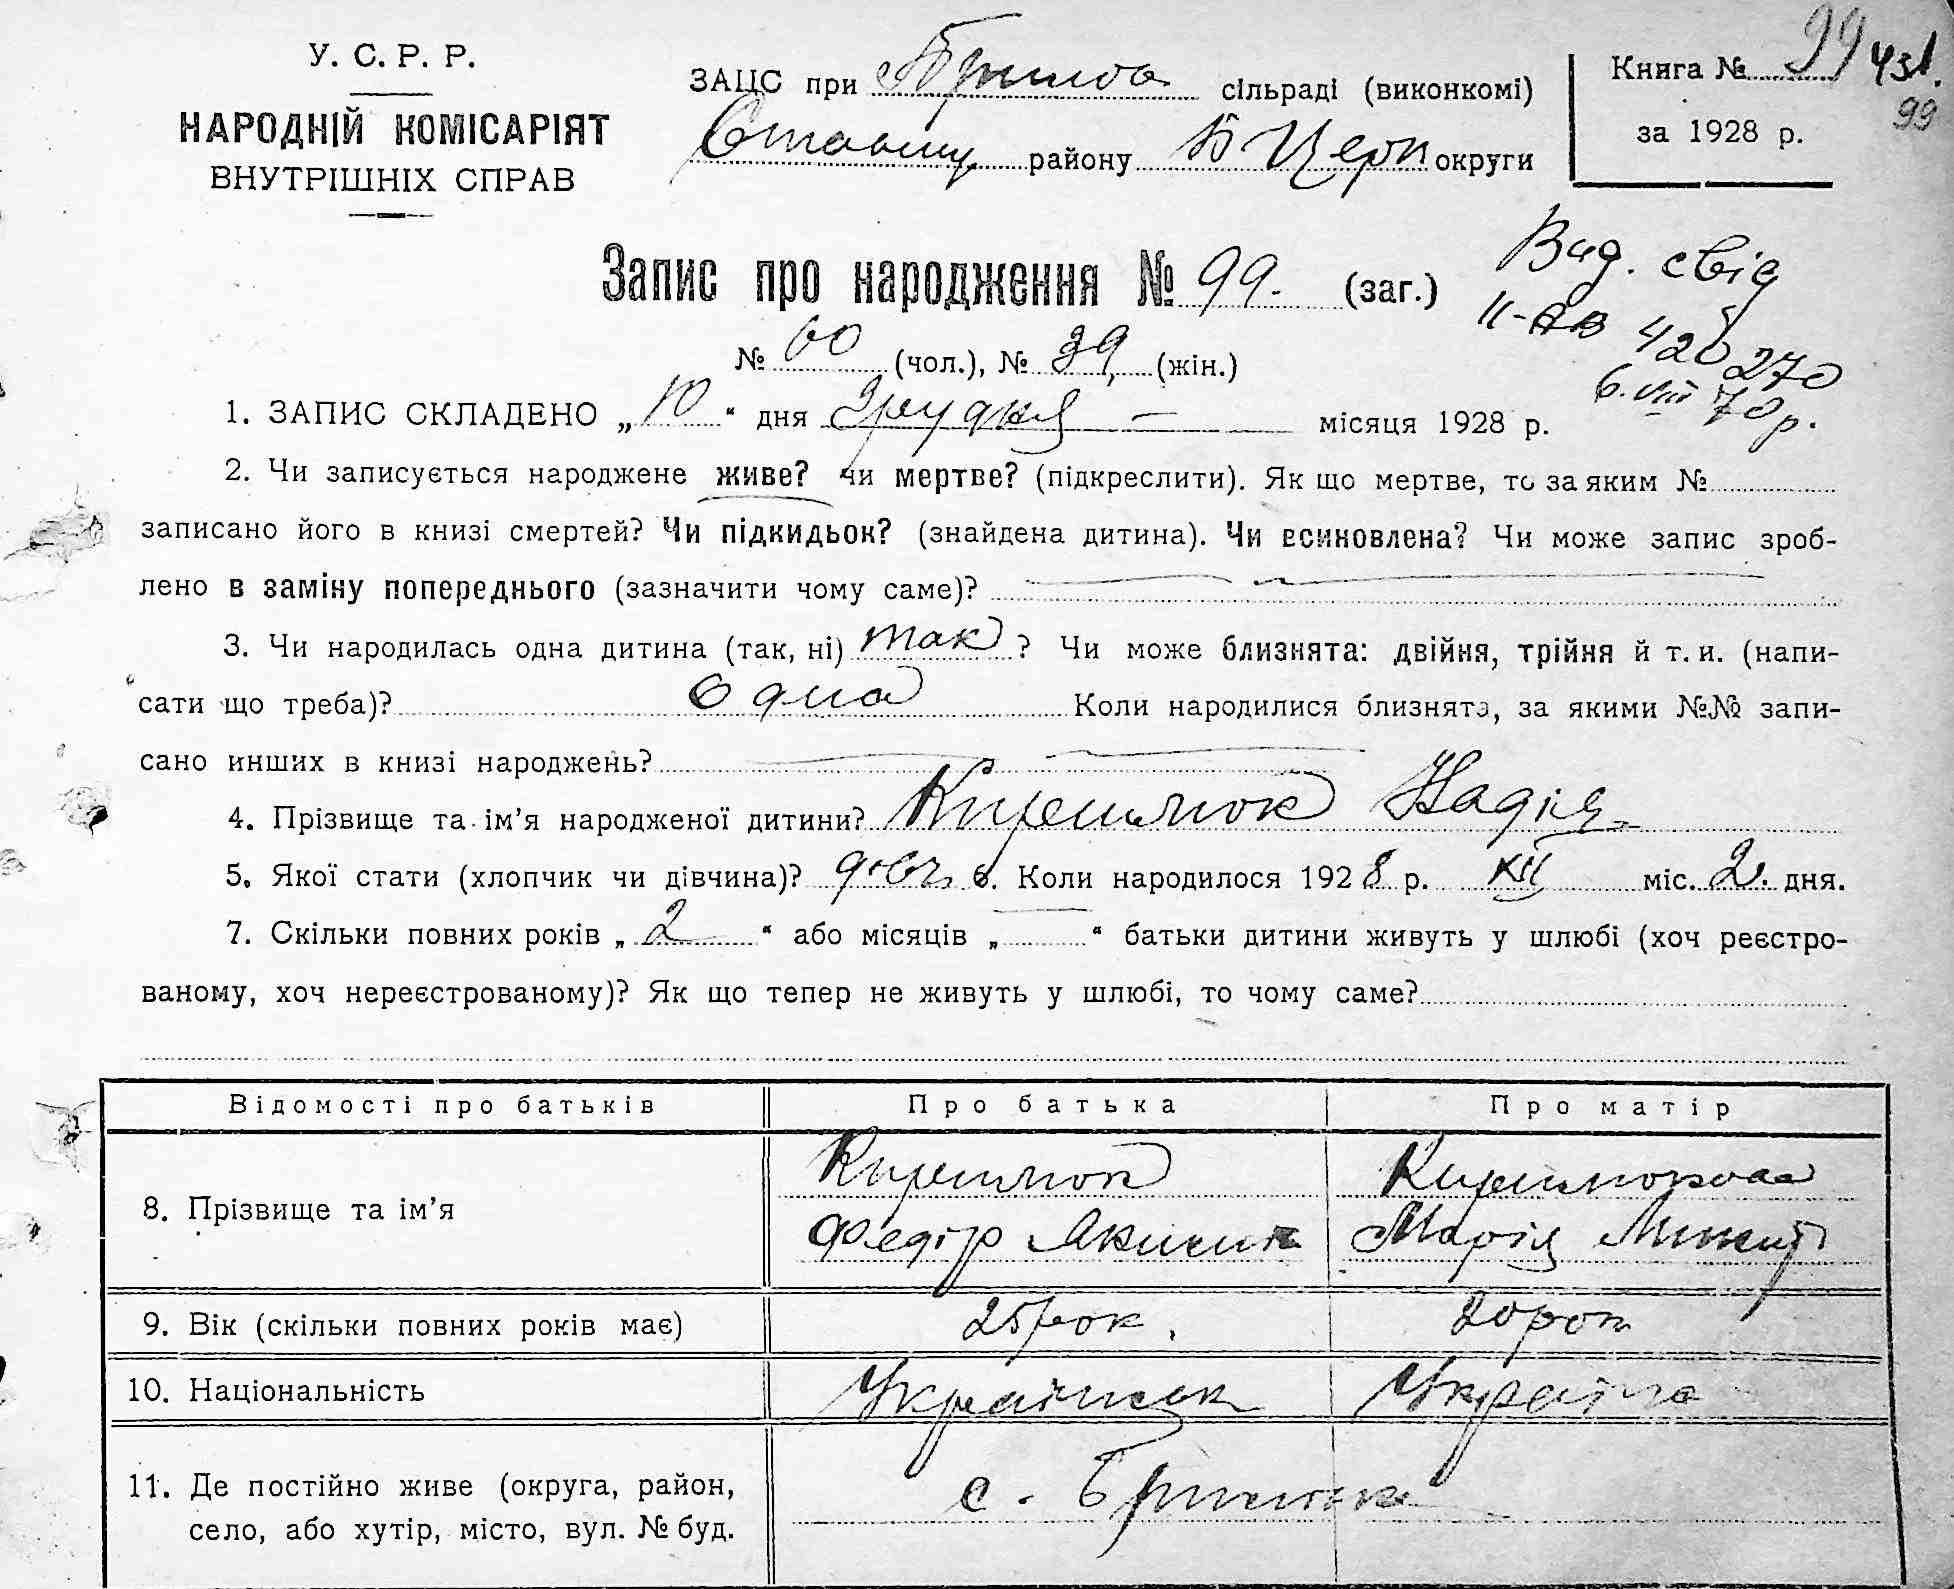 У. С. Р. Р.
НАРОДНІЙ КОМІСАРІЯТ
ВНУТРІШНІХ СПРАВ
ЗАЦС при сільраді (виконкомі)
Ставищ району Б Церк округи
Книга № 99 431.
99
за 1928 р.
Запис про народження № 99. (заг.)
Вид. свід
ІІ-АВ 420270
6.VIII 70р.
№ 60 (чол.), № 39, (жін.)
1. ЗАПИС СКЛАДЕНО „10“ дня Грудня — місяця 1928 р.
2. Чи записується народжене живе? чи мертве? (підкреслити). Як що мертве, то за яким №
записано його в книзі смертей? Чи підкидьок? (знайдена дитина). Чи всиновлена? Чи може запис зроб-
лено в заміну попереднього (зазначити чому саме)?
3. Чи народилась одна дитина (так, ні) так ? Чи може близнята: двійня, трійня й т. и. (напи-
сати що треба)? одна Коли народилися близнята, за якими №№ запи-
сано инших в книзі народжень?
4. Прізвище та ім’я народженої дитини? Надія
5. Якої стати (хлопчик чи дівчина)? дівч. 6. Коли народилося 1928 р. XII міс. 2. дня.
7. Скільки повних років „2“ або місяців „—“ батьки дитини живуть у шлюбі (хоч реєстро-
ваному, хоч нереєстрованому)? Як що тепер не живуть у шлюбі, то чому саме?
Відомості про батьків Про батька Про матір
8. Прізвище та ім’я
Федір Марія
9. Вік (скільки повних років має) 25 рок. 20 рок
10. Національність Українець Україна
11. Де постійно живе (округа, район, с.
село, або хутір, місто, вул. № буд.